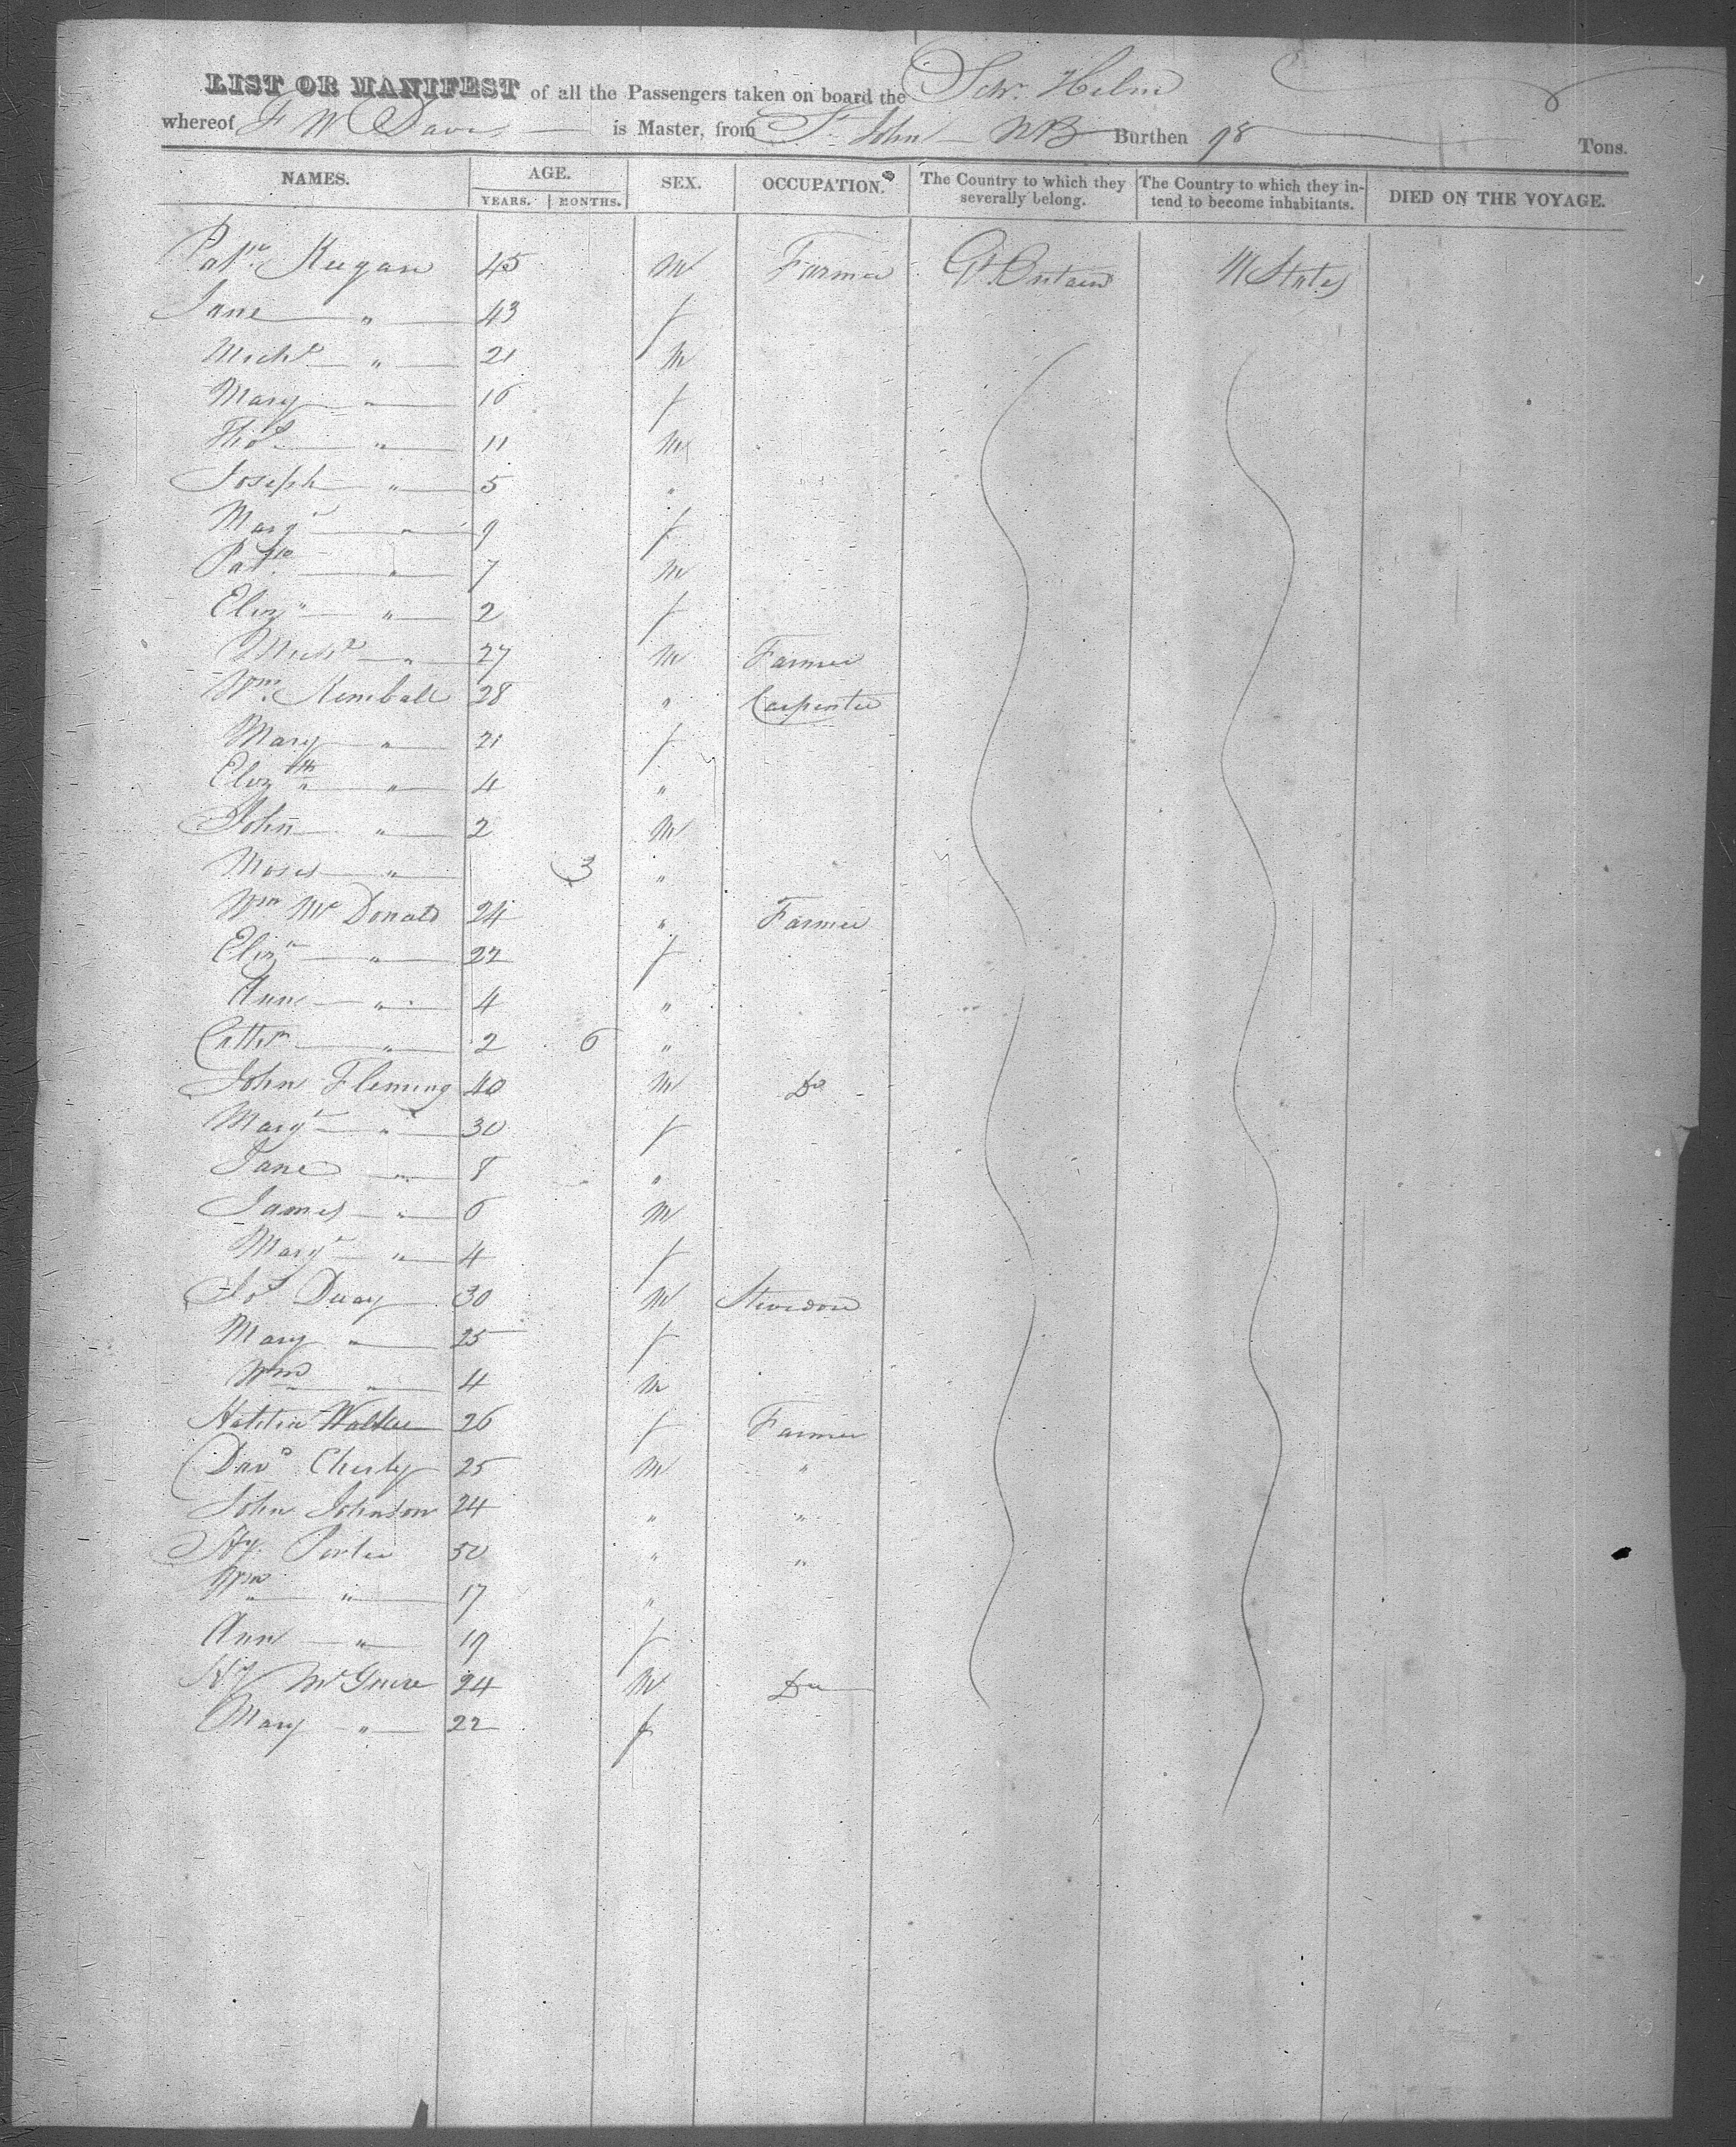 LIST OR MANIFEST of all the Passengers taken on board the Schr. Helen
whereof F W Davis is Master, from St John NB Burthen 98 Tons.
NAMES. AGE. SEX. OCCUPATION. The Country to which they severally belong. The Country to which they intend to become inhabitants. DIED ON THE VOYAGE.
YEARS. MONTHS.
Patk Keegan 45 M Farmer Gt. Britain U States
Jane " 43 f
Michl " 21 M
Mary " 16 f
Thos " 11 M
Joseph " 5 "
Margt " 9 f
Patk " 7 M
Eliz " 2 f
Michl " 27 M Farmer
Wm Kimball 28 " Carpenter
Mary " 21 f
Elizth " 4 "
John " 2 M
Moses " 3 "
Wm McDonald 24 " Farmer
Eliz " 22 f
Ann " 4 "
Cathn " 2 6 "
John Fleming 40 M Do
Margt " 30 f
Jane " 8 "
James " 6 M
Margt " 4 f
Jos Duay 30 M Stevedore
Mary " 25 f
Wm " 4 M
Walker 26 f Farmer
Davd 25 M "
John Johnson 24 " "
Hy. Porter 50 " "
Wm " 17 "
Ann " 19 f
Hy McGuire 24 M Do
Mary " 22 f